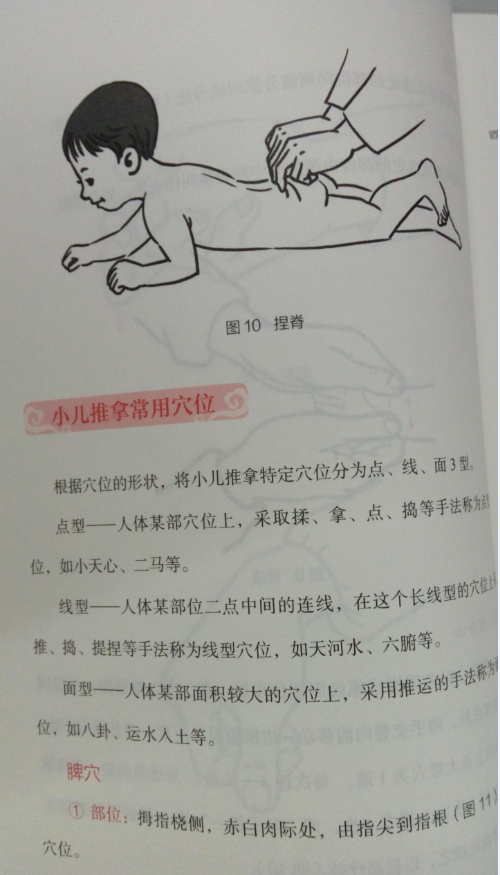 图10 捏脊
小儿推拿常用穴位
根据穴位的形状，将小儿推拿特定穴位分为点、线、面3型。
点型——人体某部穴位上，采取揉、拿、点、捣等手法称为点
位，如小天心、二马等。
线型——人体某部位二点中间的连线，在这个长线型的穴位上
推、捣、提捏等手法称为线型穴位，如天河水、六腑等。
面型——人体某部面积较大的穴位上，采用推运的手法称为
位，如八卦、运水入土等。
脾穴
① 部位：拇指桡侧，赤白肉际处，由指尖到指根（图11）
穴位。